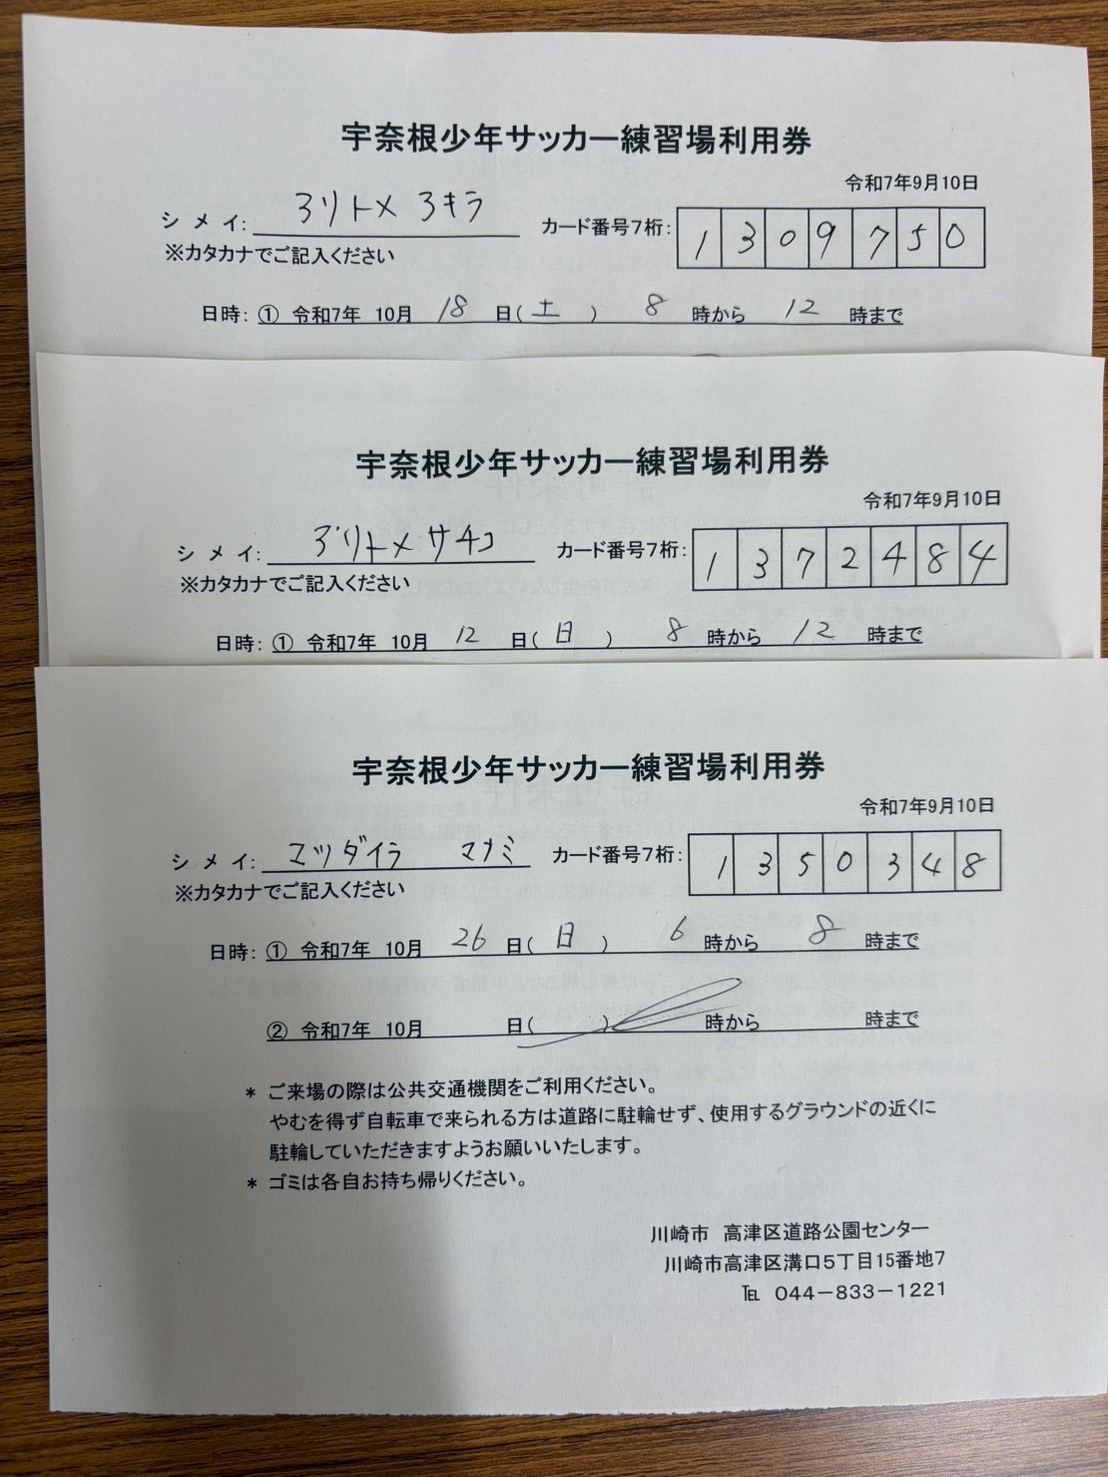 宇奈根少年サッカー練習場利用券
令和7年9月10日
シメイ: ヨリトメ ヨキラ カード番号7桁: 1309750
※カタカナでご記入ください
日時: ① 令和7年 10月 18 日( 土 ) 8 時から 12 時まで
宇奈根少年サッカー練習場利用券
令和7年9月10日
シメイ: ヨリトメ サチコ カード番号7桁: 1372484
※カタカナでご記入ください
日時: ① 令和7年 10月 12 日( 日 ) 8 時から 12 時まで
宇奈根少年サッカー練習場利用券
令和7年9月10日
シメイ: マツダイラ マナミ カード番号7桁: 1350348
※カタカナでご記入ください
日時: ① 令和7年 10月 26 日( 日 ) 6 時から 8 時まで
② 令和7年 10月 日( ) 時から 時まで
* ご来場の際は公共交通機関をご利用ください。
やむを得ず自転車で来られる方は道路に駐輪せず、使用するグラウンドの近くに
駐輪していただきますようお願いいたします。
* ゴミは各自お持ち帰りください。
川崎市 高津区道路公園センター
川崎市高津区溝口5丁目15番地7
℡ 044-833-1221